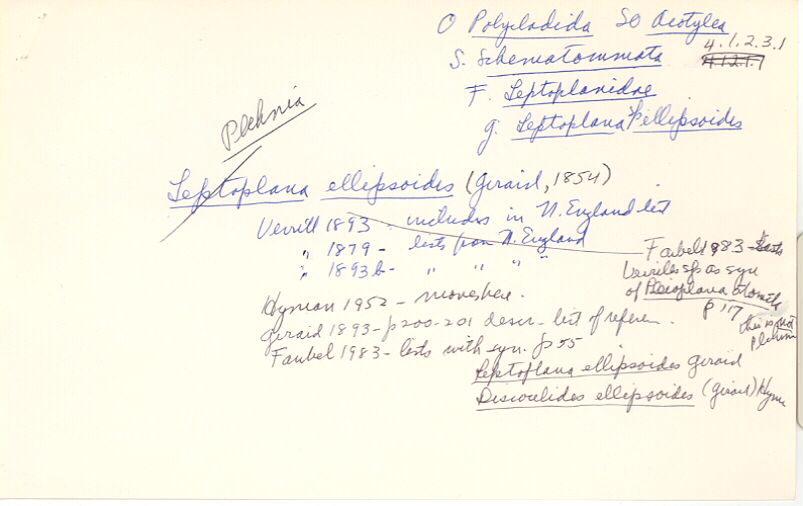 O Polycladida SO Acotylea
S. Schematommata 4.1.2.3.1
4.1.2.1.1
F. Leptoplanidae
g. Leptoplana ellipsoides
Plehnia
Leptoplana ellipsoides (Girard, 1854)
Verrill 1893 - includes in N. England list
" 1879 - lists from N. England
" 1893b - " " "
Faubel 1983 - lists
Verrills sp as syn
of Pleioplana atomata
p 117
this is not
Plehnia
Hyman 1952 - moves here.
Girard 1893 - p 200-201 descr - list of referen.
Faubel 1983 - lists with syn. p 55
Leptoplana ellipsoides Girard
Discocelides ellipsoides (Girard) Hyma